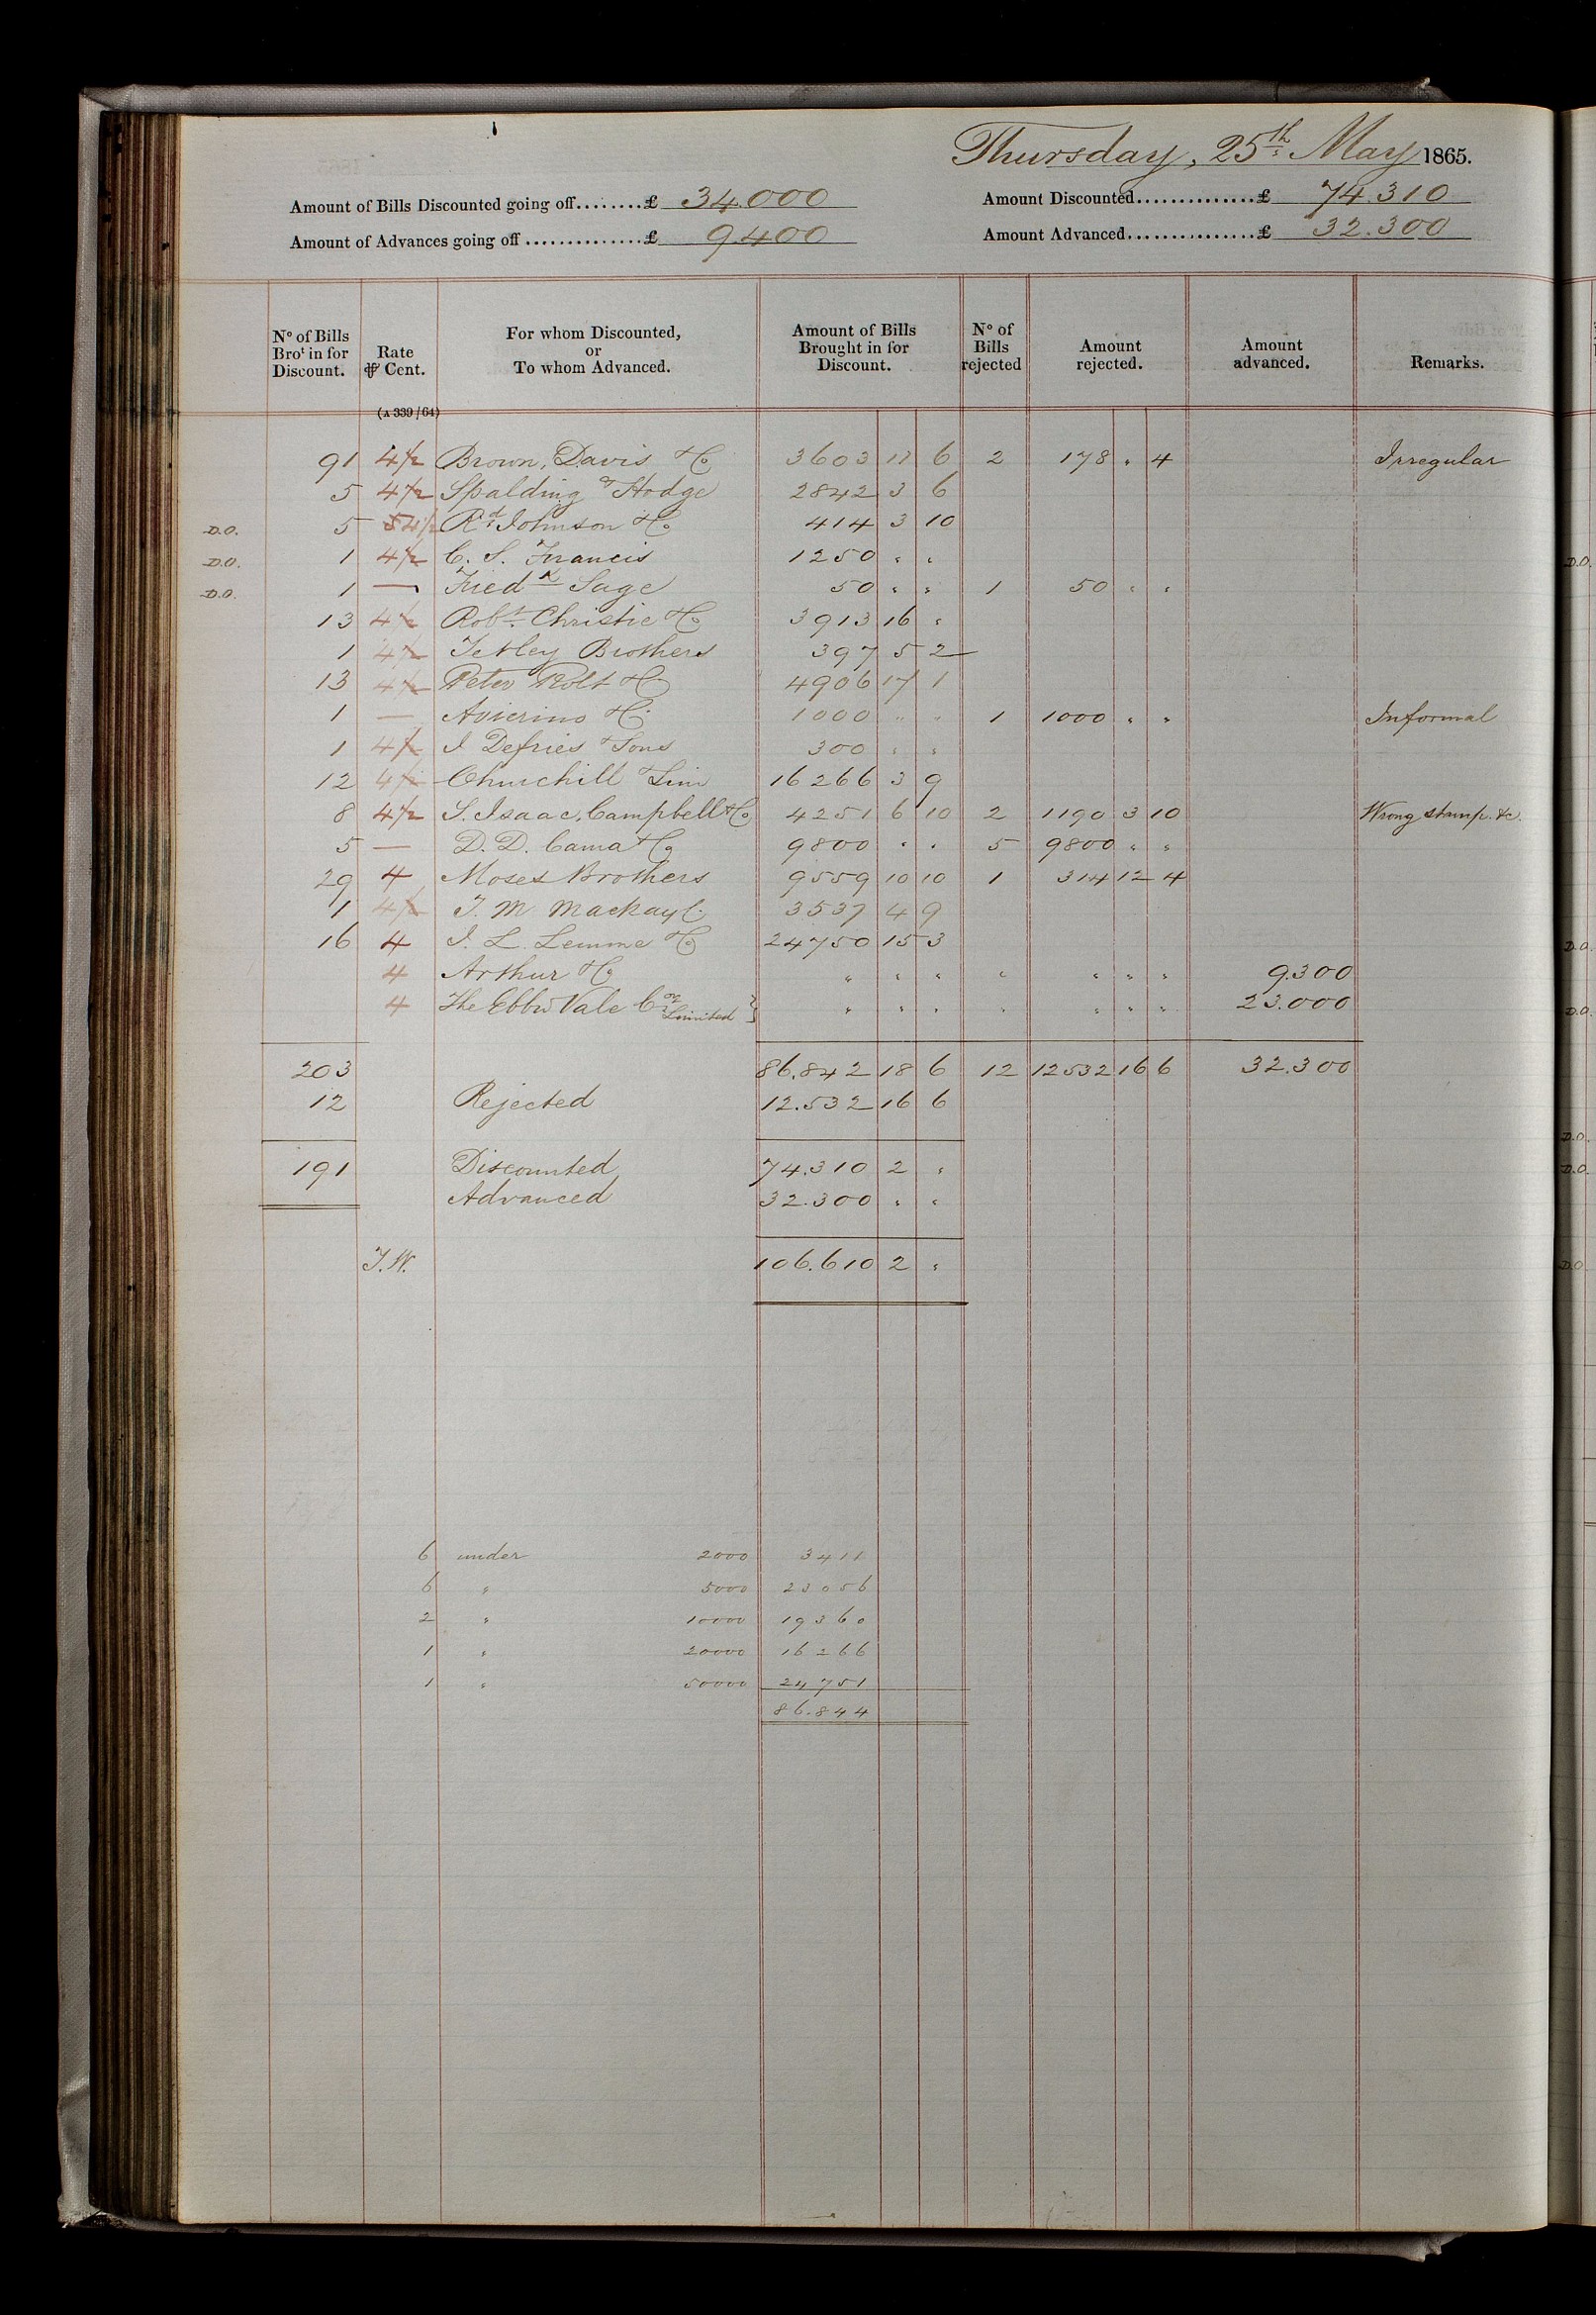 Thursday, 25th May 1865.
Amount of Bills Discounted going off........£ 34.000
Amount Discounted..............£ 74.310
Amount of Advances going off..............£ 9400
Amount Advanced.................£ 32.300
No of Bills Brot in for Discount. Rate ⅌ Cent. For whom Discounted, or To whom Advanced. Amount of Bills Brought in for Discount. No of Bills rejected Amount rejected. Amount advanced. Remarks.
(A 339/64)
91 4½ Brown, Davis & Co 3603 11 6 2 178 " 4 Irregular
5 4½ Spalding & Hodge 2842 3 6
D.O. 5 5 4½ Rd Johnson & Co 414 3 10
D.O. 1 4½ C. S. Francis 1250 " "
D.O. 1 — Fredk Sage 50 " " 1 50 " "
13 4½ Robt Christie & Co 3913 16 "
1 4½ Tetley Brothers 397 5 2
13 4½ Peter Rolt & Co 4906 17 1
1 — Avierino & Co 1000 " " 1 1000 " " Informal
1 4½ J Defries & Sons 300 " "
12 4½ Churchill & Sim 16266 3 9
8 4½ S. Isaac, Campbell & Co 4251 6 10 2 1190 3 10 Wrong stamp. &c.
5 — D. D. Cama & Co 9800 " " 5 9800 " "
29 4 Moses Brothers 9559 10 10 1 314 12 4
1 4½ T. M Mackay & Co 3537 4 9
16 4 J. L. Lemme & Co 24750 15 3
4 Arthur & Co " " " " " " " 9.300
4 The Ebbw Vale Coy Limited } " " " " " " " 23.000
203 86.842 18 6 12 12532 16 6 32.300
12 Rejected 12.532 16 6
191 Discounted 74.310 2 "
Advanced 32.300 " "
J.W. 106.610 2 "
6 under 2000 3411
6 " 5000 23056
2 " 10000 19360
1 " 20000 16266
1 " 50000 24751
86.844
D.O.
D.O.
D.O.
D.O.
D.O.
D.O.